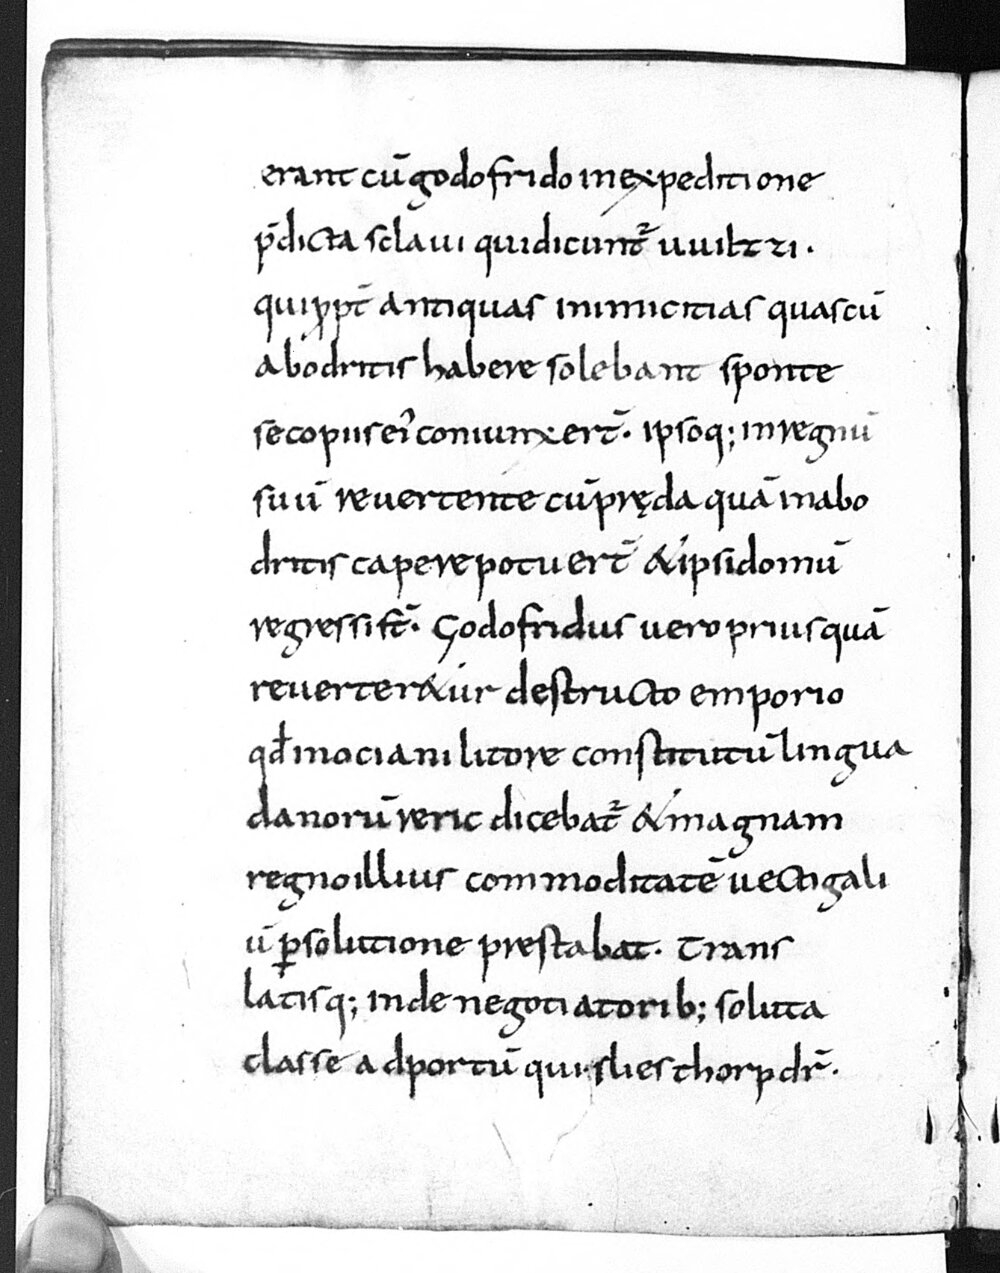 erant cū godofrido in expeditione
p̄dicta sclaui qui dicunt᷑ uuiltzi.
qui ꝓpt̄ antiquas inimicitias quas cū
abodritis habere solebant sponte
se copiis ei᷑ coniunxert̄. ipsoq; in regnū
suū reuertente cū pręda quā in abo
dritis capere potuert̄ & ipsi domū
regressi st̄. Godofridus uero prius quā
reuerter&ur destructo emporio
qđ in ociani litore constitutū lingua
danorū reric dicebat᷑ & magnam
regno illius commoditatē uectigali
ū ꝑsolutione prestabat. Trans
latisq; inde negotiatorib; soluta
classe ad portū qui sliesthorp dr̄.